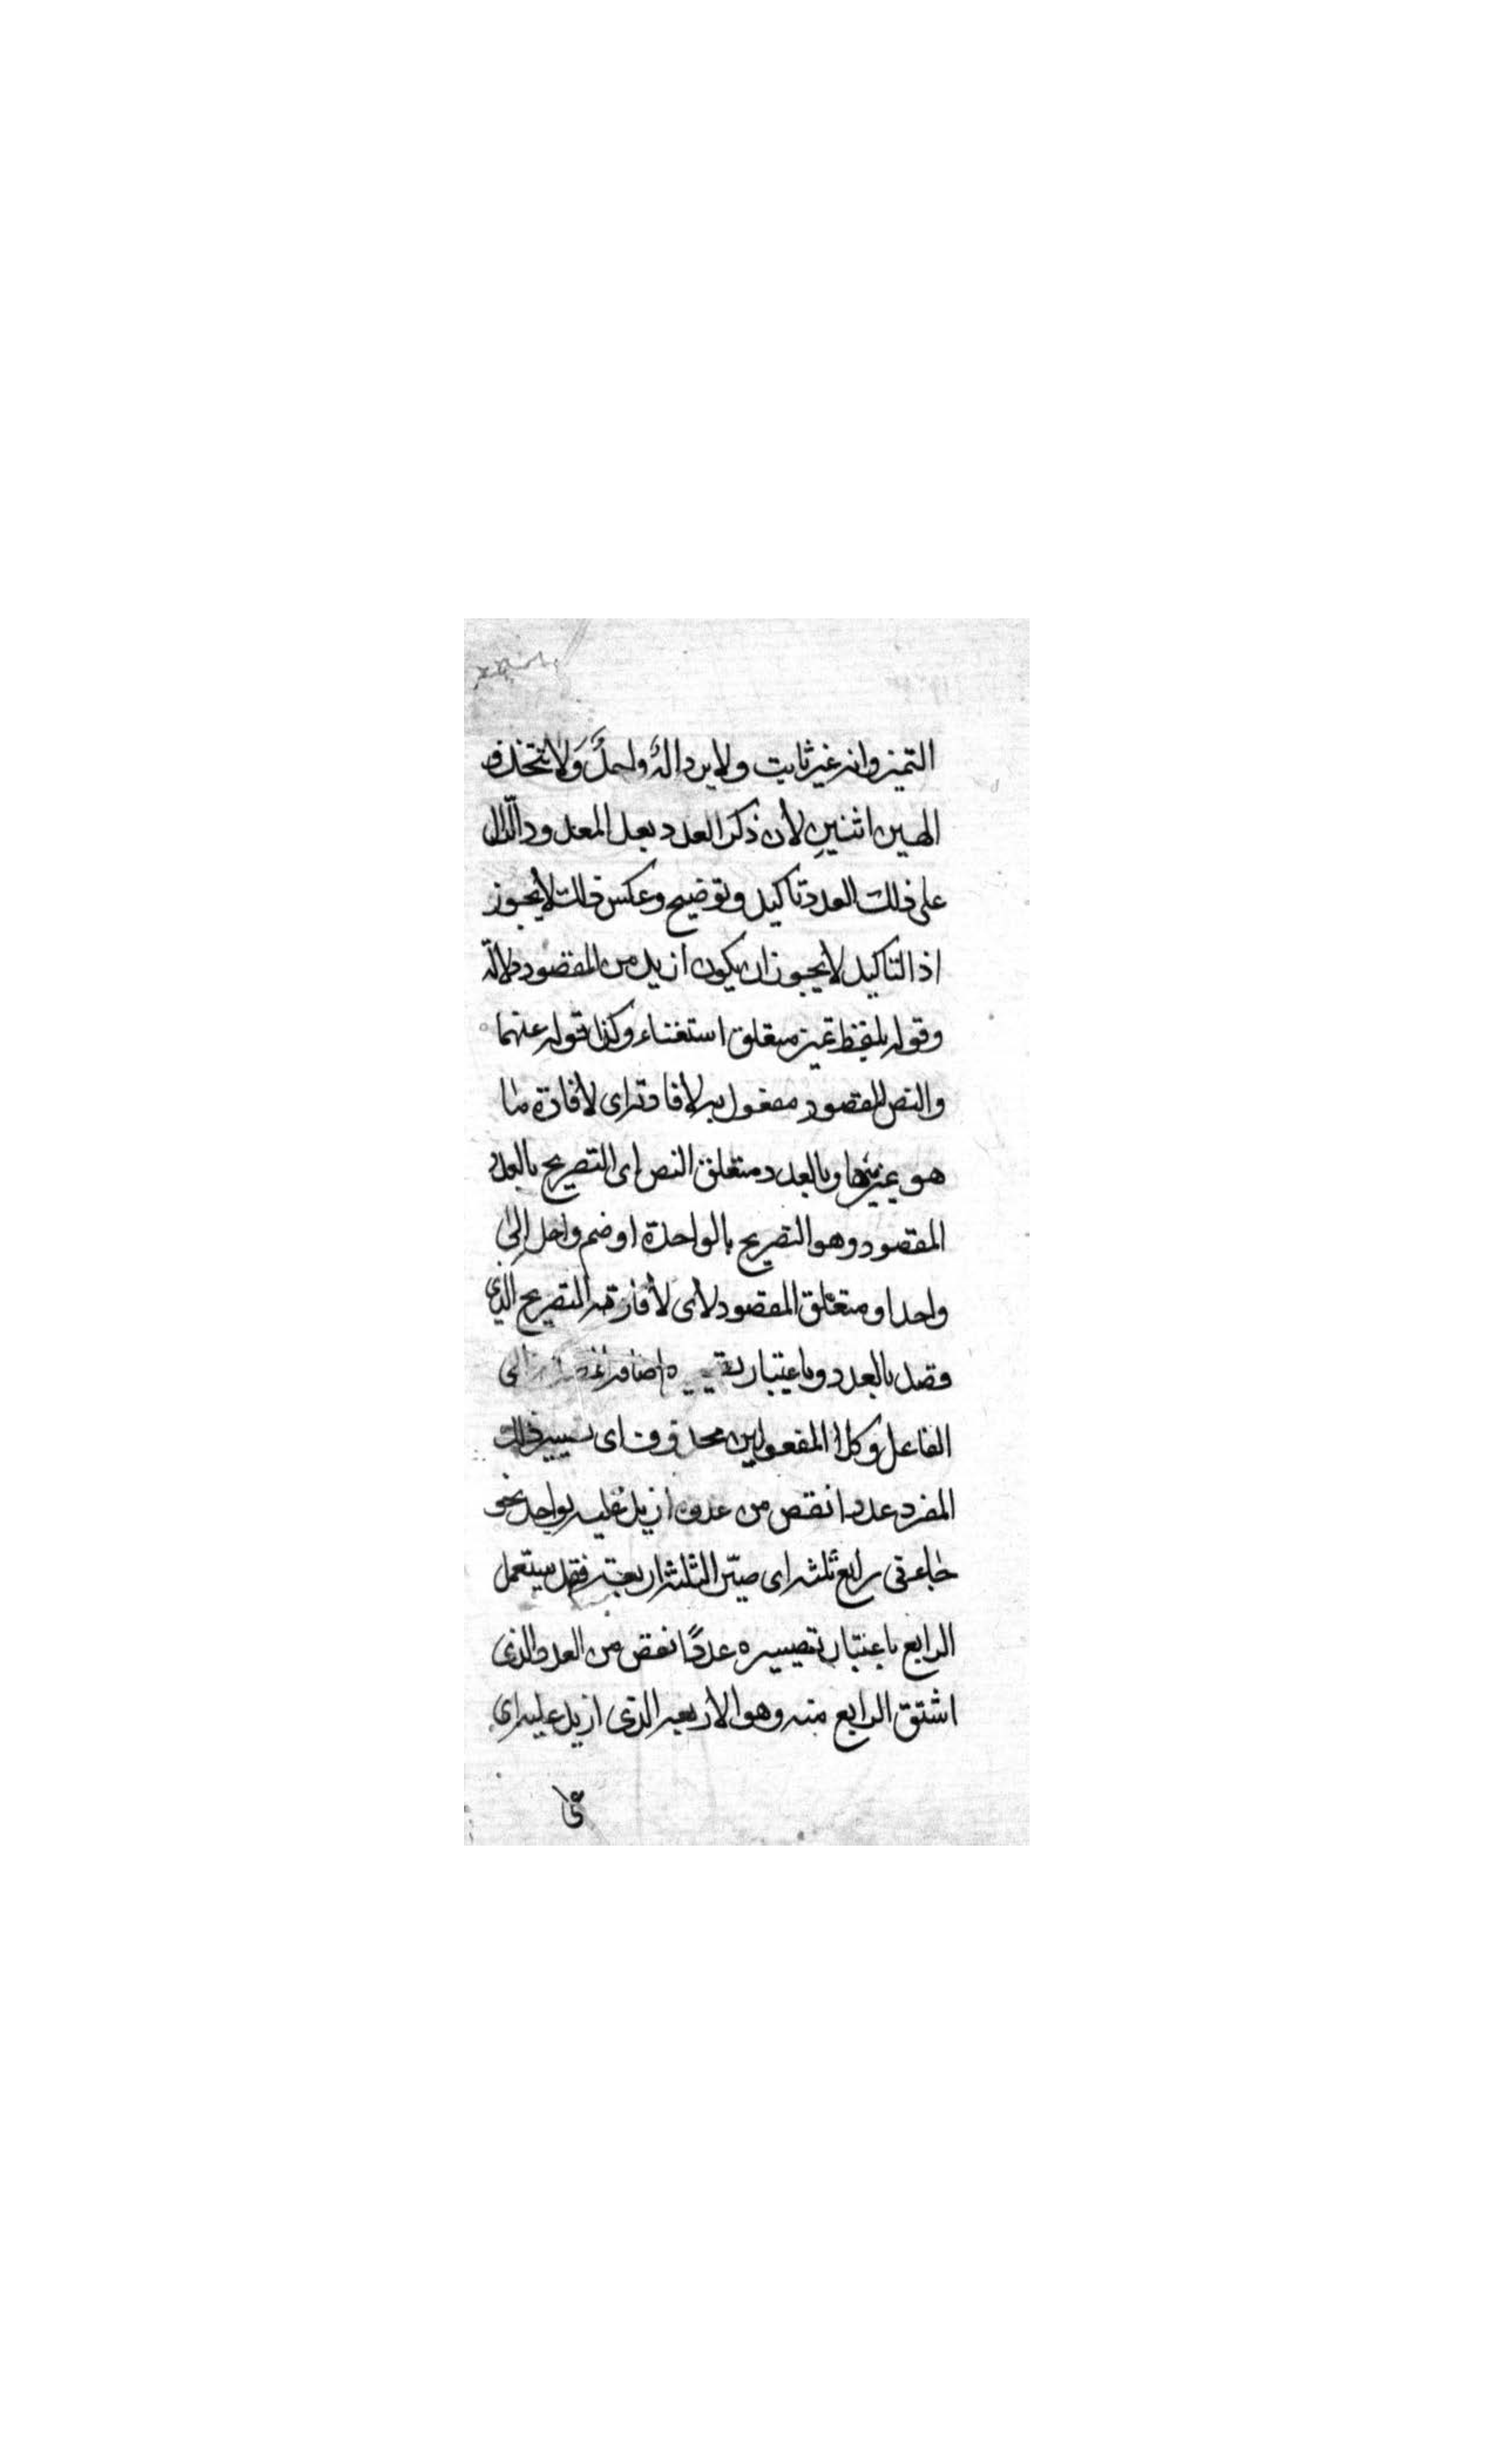 التميز وانه غير ثابت ولا يرد الهٌ واحدٌ ولا تتخذوا
الهين اثنين لأن ذكر العدد بعد المعدود دالّ
على ذلك العدد تاكيد وتوضيح وعكس ذلك لا يجوز
اذ التاكيد لا يجوز ان يكون ازيد من المقصود دلالة
وقوله بلفظ تميز متعلق استغناء وكذا قوله عنهما
والنص المقصود مفعول به لافادته اى لافادة ما
هو يميزها وبالعدد متعلق النص اى التصريح بالعدد
المقصود وهو التصريح بالواحدة او ضم واحد إلى
واحد او متعلق المقصود لاى لافادته التصريح الذى
قصد بالعدد وباعتبار اضافة الى
الفاعل وكلا المفعولين محذوف اى تصيير ذلك
المفرد عددا نقص من عدد ازيد عليه بواحد نحو
جاءنى رابع ثلثه اى صيّر الثلثة اربعة فقد يستعمل
الرابع باعتبار تصييره عددًا نقص من العدد الذى
اشتق الرابع منه وهو الاربعه الذى ازيد عليه اى